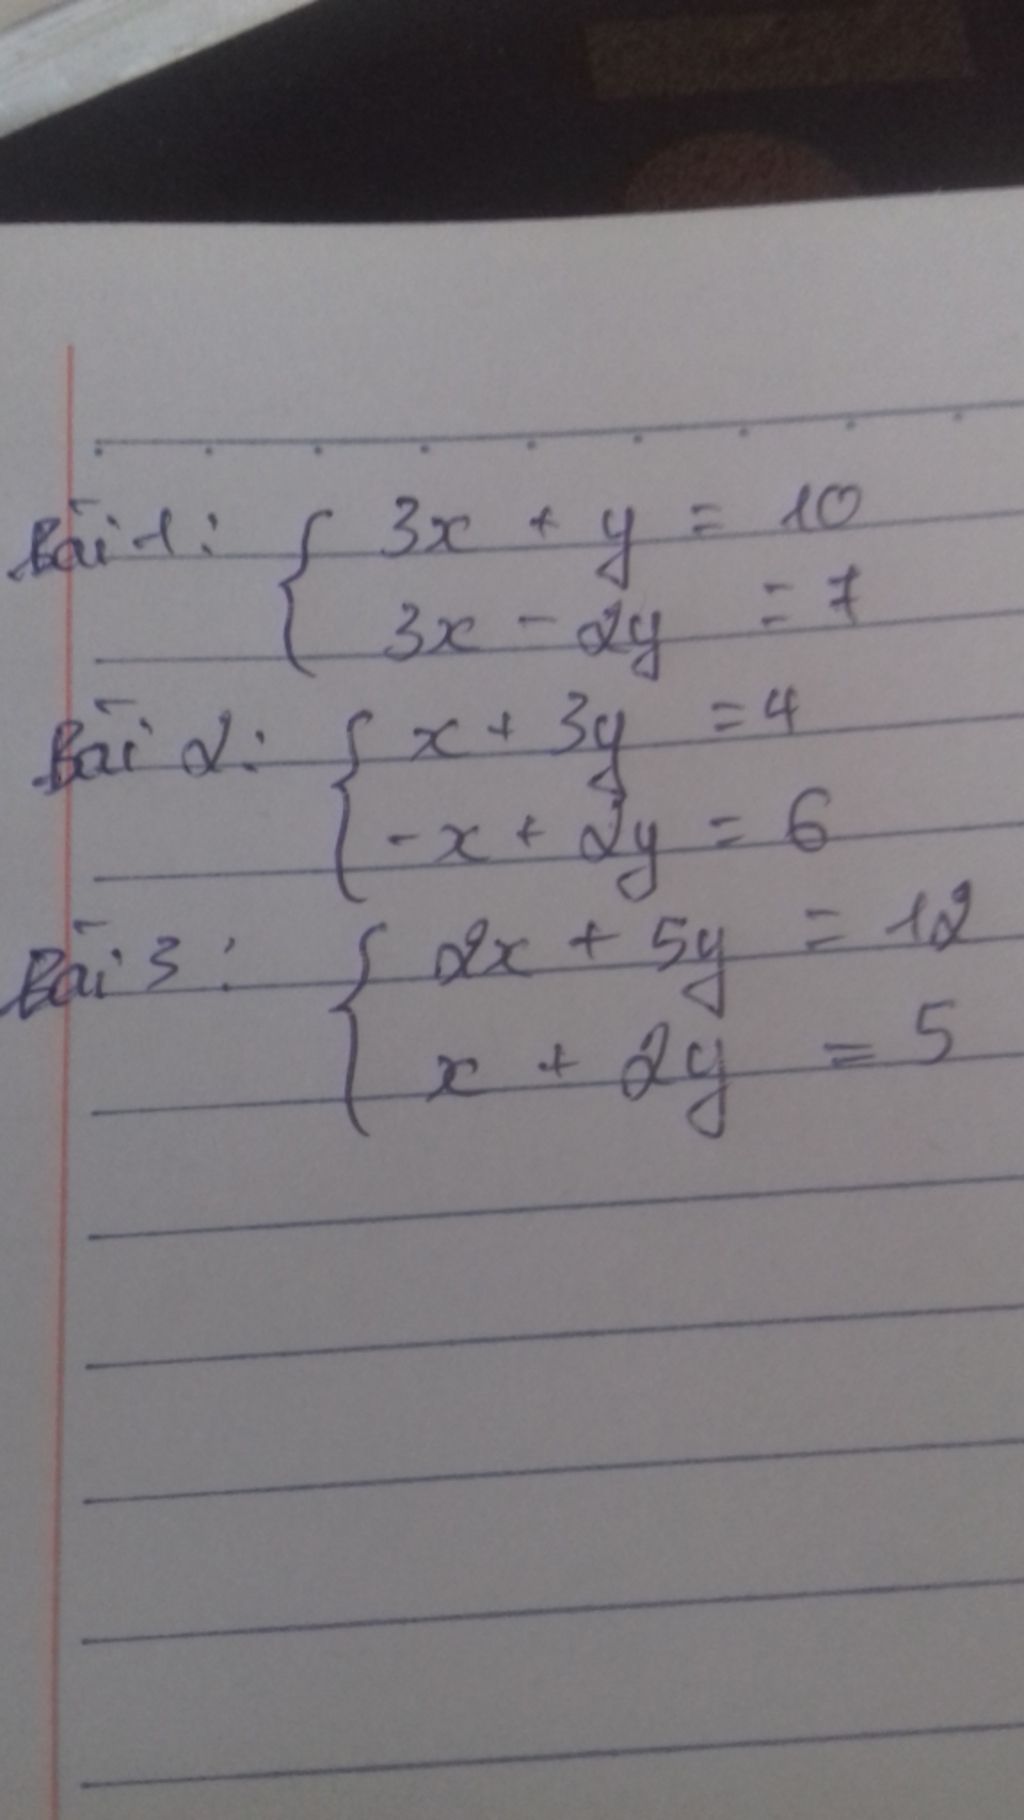 Bài 1: { 3x + y = 10
3x - 2y = 7
Bài 2: { x + 3y = 4
-x + 2y = 6
Bài 3: { 2x + 5y = 12
x + 2y = 5